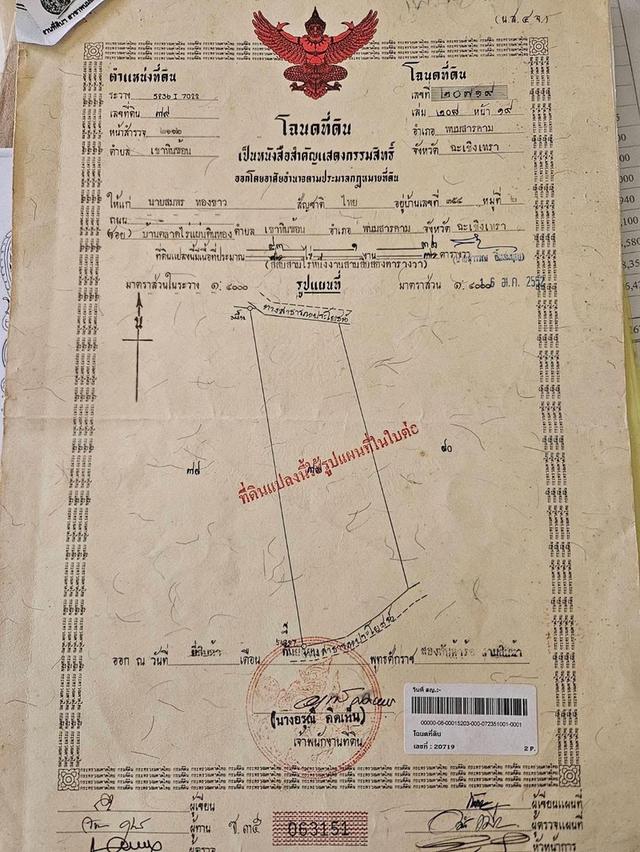 (น.ส.๔ จ.)
ตำแหน่งที่ดิน
ระวาง 5236 I 7022
เลขที่ดิน ๗๙
หน้าสำรวจ
ตำบล เขาหินซ้อน
โฉนดที่ดิน
เลขที่ ๒๐๗๑๙
เล่ม ๒๐๘ หน้า ๑๙
อำเภอ พนมสารคาม
จังหวัด ฉะเชิงเทรา
โฉนดที่ดิน
เป็นหนังสือสำคัญแสดงกรรมสิทธิ์
ออกโดยอาศัยอำนาจตามประมวลกฎหมายที่ดิน
ให้แก่ นายสมพร ทองขาว สัญชาติ ไทย อยู่บ้านเลขที่ ๓๕๕ หมู่ที่ ๒
ถนน
(ซอย) ตำบล เขาหินซ้อน อำเภอ พนมสารคาม จังหวัด ฉะเชิงเทรา
ที่ดินแปลงนี้มีเนื้อที่ประมาณ ไร่ ๑ งาน ตารางวา
มาตราส่วนในระวาง ๑: ๔๐๐๐
รูปแผนที่
มาตราส่วน ๑: ๔๐๐๐
ทางสาธารณประโยชน์
น
๗๘
๙๐
ที่ดินแปลงนี้ใช้รูปแผนที่ในใบต่อ
ทางสาธารณประโยชน์
ออก ณ วันที่ ยี่สิบห้า เดือน พุทธศักราช
(นางอรุณี คิดเห็น)
เจ้าพนักงานที่ดิน
วันที่ สญ.:-
00000-08-00015203-000-072351001-0001
โฉนดที่ดิน
เลขที่ : 20719
2 P.
ผู้เขียน
ผู้ทาน
ผู้ตรวจ
ช.๓๕
063151
ผู้เขียนแผนที่
ผู้ตรวจแผนที่
หัวหน้าการ